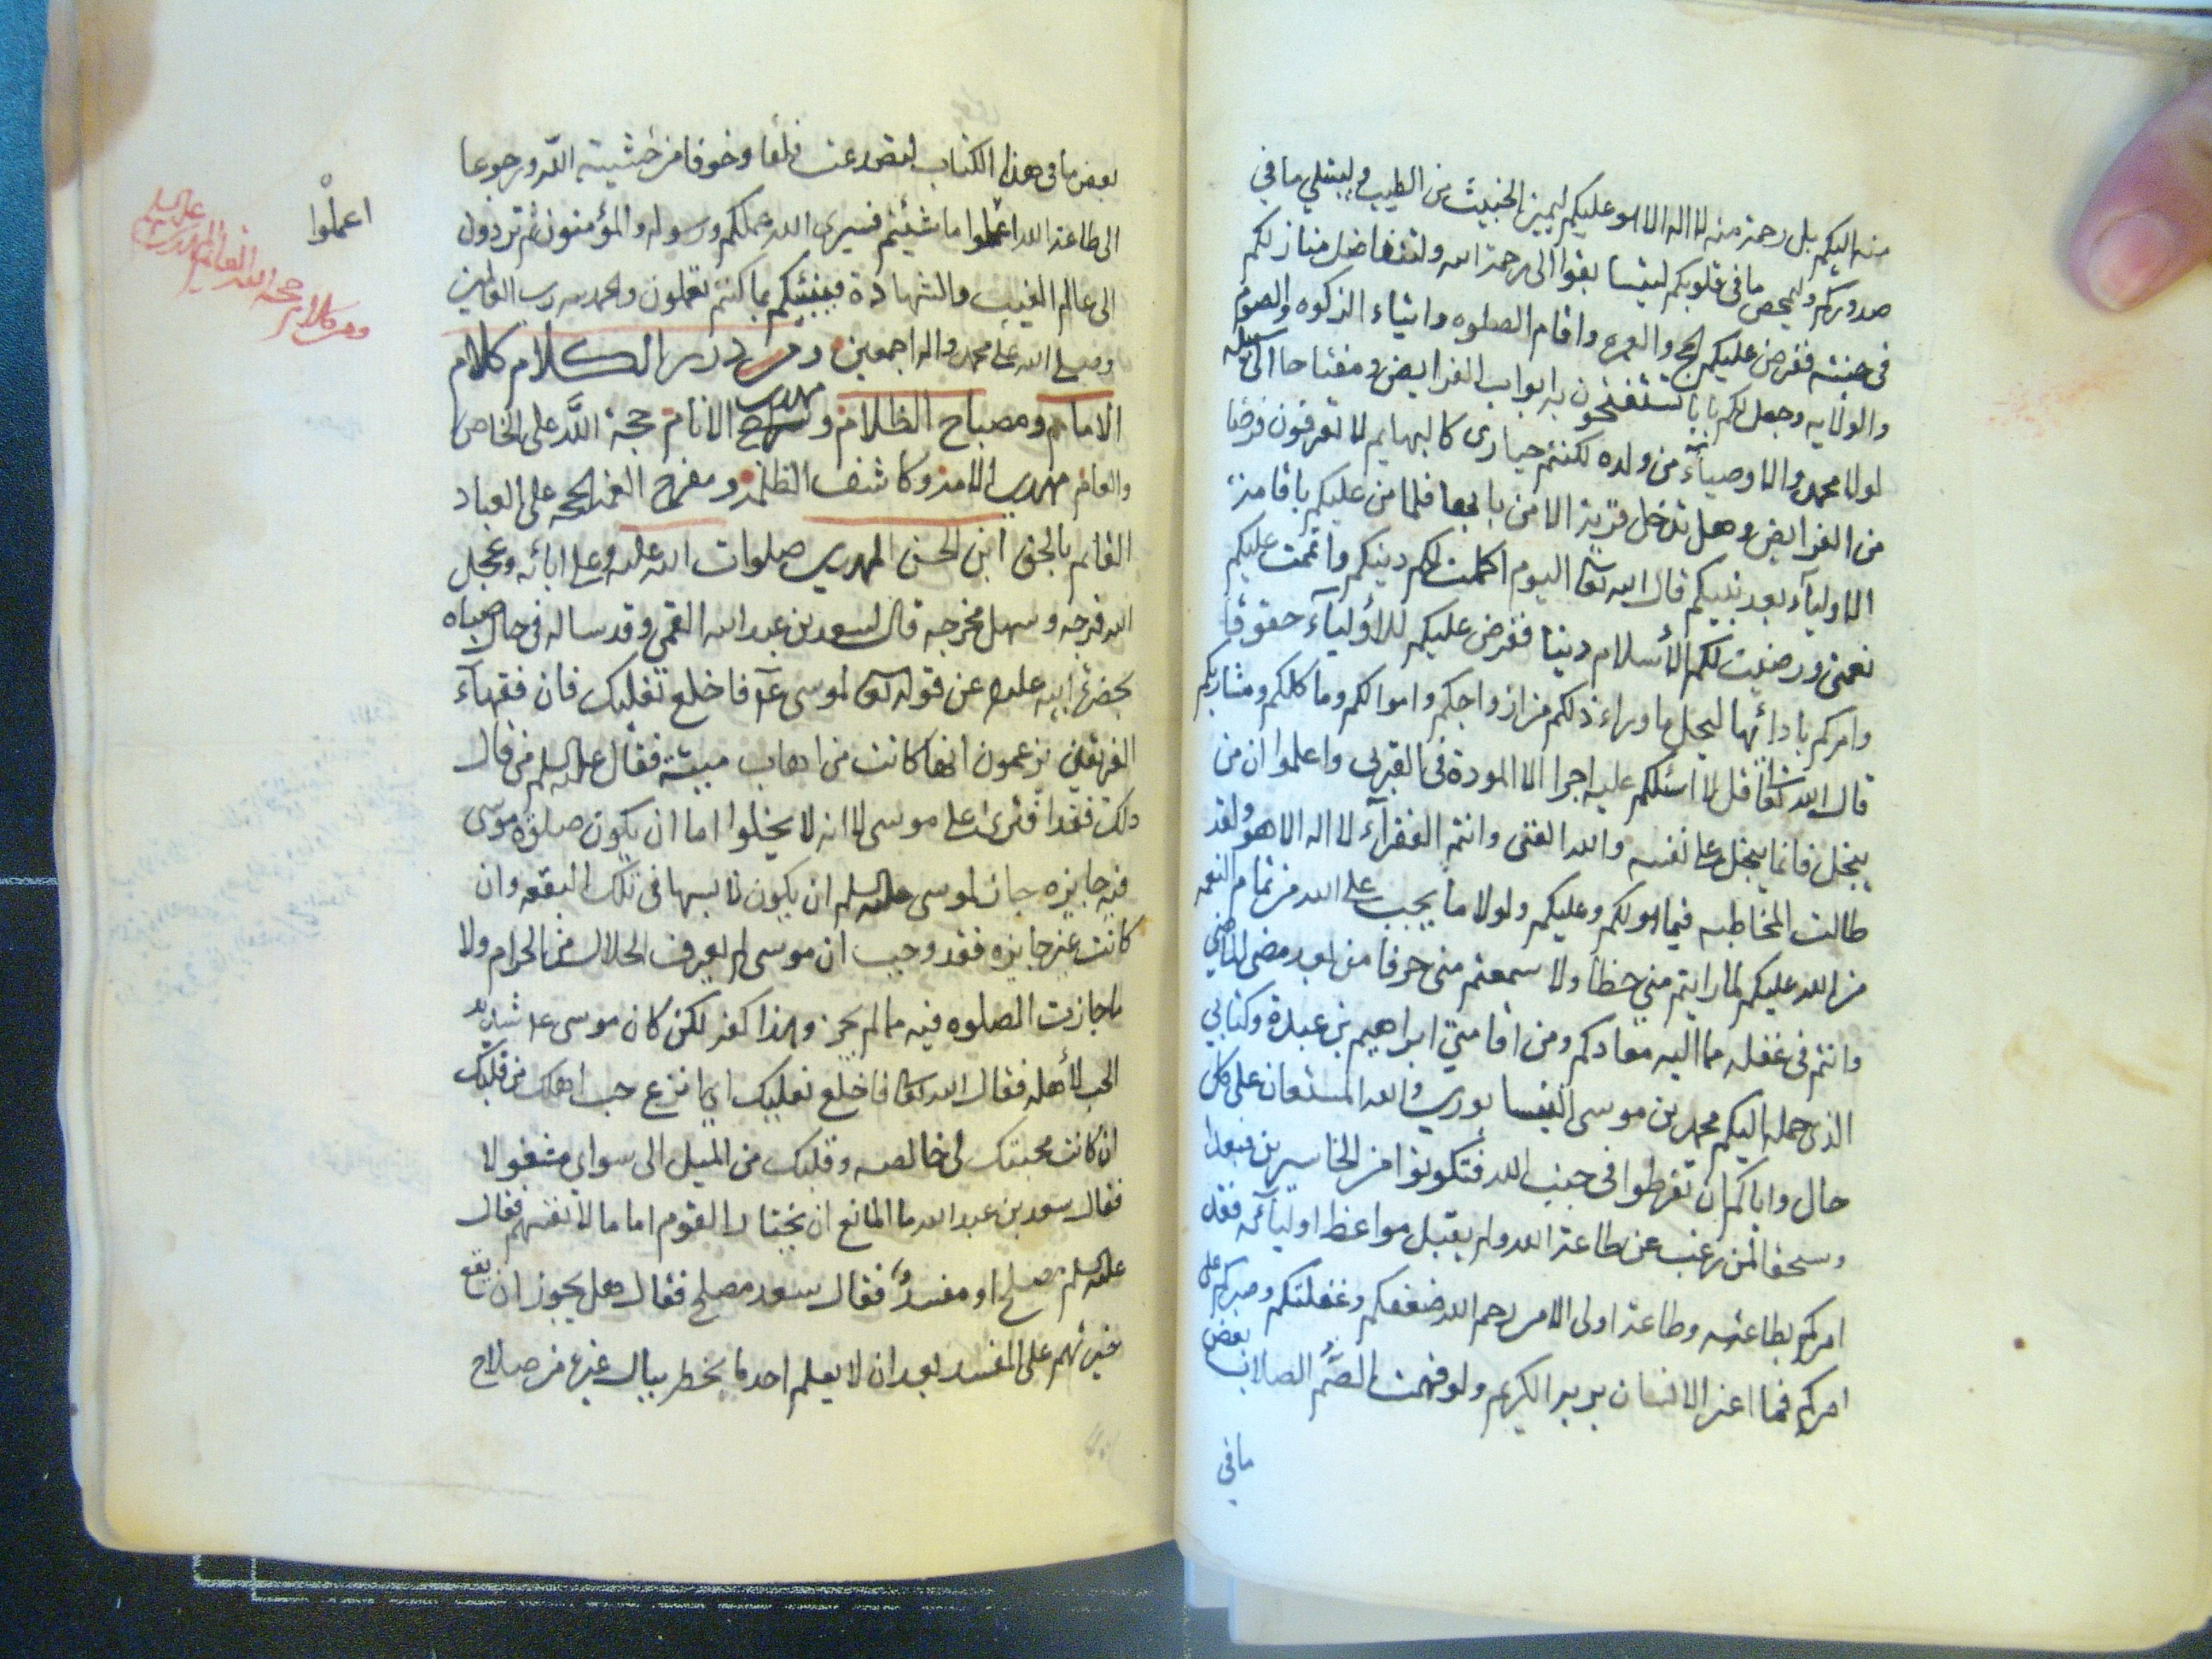 منه اليكم بل رحمة منه لا اله الا هو عليكم ليميز الخبيث من الطيب وليبتلي ما في
صدوركم وليمحص ما في قلوبكم ليتسابقوا الى رحمة الله ولتتفاضل منازلكم
في جنته ففرض عليكم الحج والعمره واقام الصلوه وايتاء الزكوه والصوم
والولايه وجعل لكم بابا تستفتحون به ابواب الفرايض ومفتاحا الى سبيله
لولا محمد والاوصيآء من ولده لكنتم حيارى كالبهايم لا تعرفون فرضا
من الفرايض وهل تدخل قرية الا من بابها فلما من عليكم باقامة
الاوليآء بعد نبيكم قال الله تعا اليوم اكملت لكم دينكم واتممت عليكم
نعمتي ورضيت لكم الأسلام دينا ففرض عليكم للاوليآء حقوقا
وامركم بادائها ليحل ما وراء ذلكم من ازواجكم واموالكم وماكلكم ومشاربكم
قال الله تعا قل لا اسئلكم عليه اجرا الا المودة في القربى واعلموا ان من
يبخل فانما يبخل على نفسه والله الغنى وانتم الفقرآء لا اله الا هو ولقد
طالت المخاطبه فيما هو لكم وعليكم ولولا ما يجب على الله من تمام النعمه
من الله عليكم لما رايتم مني خطا ولا سمعتم مني حرفا من بعد مضي الماضي
وانتم في غفله مما اليه معادكم ومن اقامتي ابراهيم بن عبدة وكتابي
الذي حمله اليكم محمد بن موسى النيسابوري والله المستعان على كل
حال واياكم ان تفرطوا في جنب الله فتكونوا من الخاسرين فبعدا
وسحقا لمن رغب عن طاعة الله ولم يقبل مواعظ اوليآئه فقد
امركم بطاعته وطاعة اولى الامر رحم الله ضعفكم وغفلتكم وصبركم على
امركم فما اغر الانسان بربه الكريم ولو فهمت الصم الصلاب بعض
ما في
بعض ما في هذا الكتاب لتصدعت قلقا وخوفا من خشية الله ورجوعا
الى طاعة الله اعملوا ما شئتم فسيرى الله عملكم ورسوله والمؤمنون ثم تردون
الى عالم الغيب والشهادة فينبئكم بما كنتم تعملون والحمد لله رب العالمين
وصلى الله على محمد واله اجمعين ومن درر الكلام كلام
الامام ومصباح الظلام ومهدي الانام حجة الله على الخاص
والعام مهدي الامة وكاشف الظلمة ومفرج الغمة الحجه على العباد
القايم بالحق ابن الحسن المهدي صلوات الله عليه وعلى ابائه وعجل
الله فرجه وسهل مخرجه قال لسعد بن عبد الله القمي وقد ساله في حال صباه
بحضرة ابيه عليه عن قوله تعا لموسى ع فاخلع نعليك فان فقهآء
الفريقين يزعمون انها كانت من اهاب ميتة فقال عليه السلم من قال
ذلك فقد افترى على موسى لا انه لا يخلوا اما ان يكون صلوة موسى
فيه جايزه جاز لموسى عليه السلم ان يكون لابسها في تلك البقعه وان
كانت غير جايزه فقد وجب ان موسى لم يعرف الحلال من الحرام ولا
ما جازت الصلوه فيه مما لم يجز وهذا كفر لكن كان موسى ع شديد
الحب لأهله فقال الله تعا فاخلع نعليك اي انزع حب اهلك من قلبك
ان كانت محبتك لى خالصه وقلبك من الميل الى سواي مغسولا
فقال سعد بن عبد الله ما المانع ان يختار القوم اماما لانفسهم فقال
عليه السلم مصلح او مفسد فقال سعد مصلح فقال هل يجوز ان يقع
خيرتهم على المفسد بعد ان لا يعلم احد ما يخطر ببال غيره من صلاح
اعملوا
ومن كلام حجة الله القائم المهدي عليه السلم